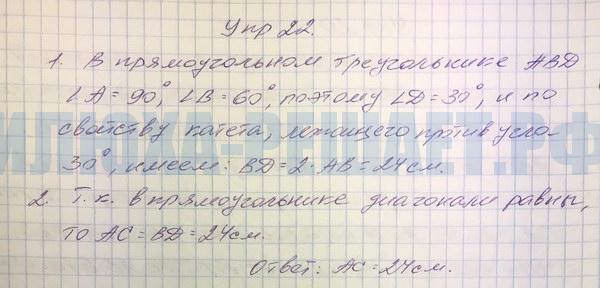 Упр 22.
1. В прямоугольном треугольнике ABD
∠A = 90°, ∠B = 60°, поэтому ∠D = 30°, и по
свойству катета, лежащего против угла
30°, имеем: BD = 2 · AB = 24 см.
2. Т. к. в прямоугольнике диагонали равны,
то AC = BD = 24 см.
Ответ: AC = 24 см.